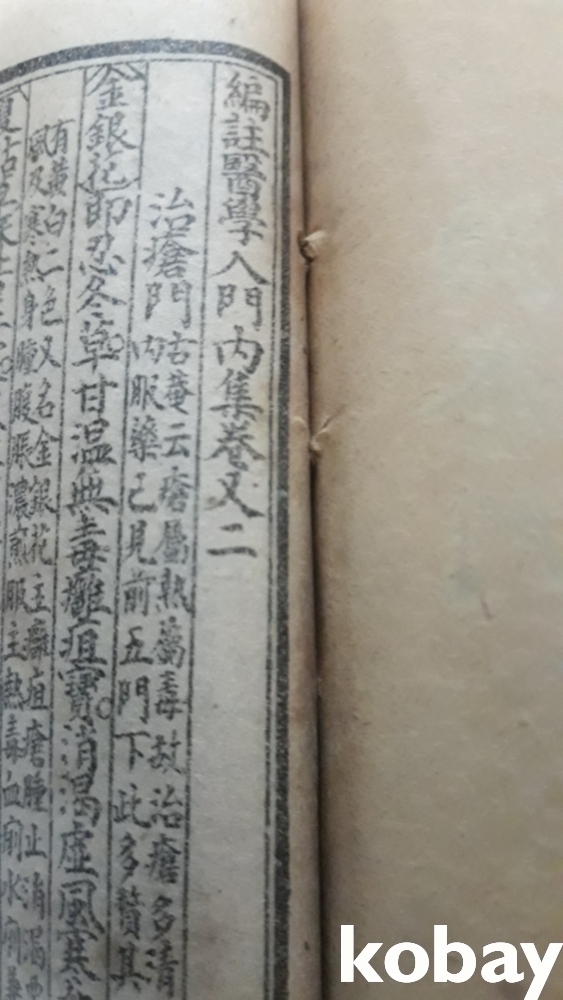 編註醫學入門內集卷又二
治瘡門
古菴云瘡屬熱屬毒故治瘡多清
內服藥已見前五門下此多贅其
金銀花即忍冬草甘溫無毒癰疽寶消渴虛風寒
有黃白二色又名金銀花主癰疽瘡腫止消渴
風及寒熱身腫腹脹濃煎服主熱毒血痢水痢
kobay